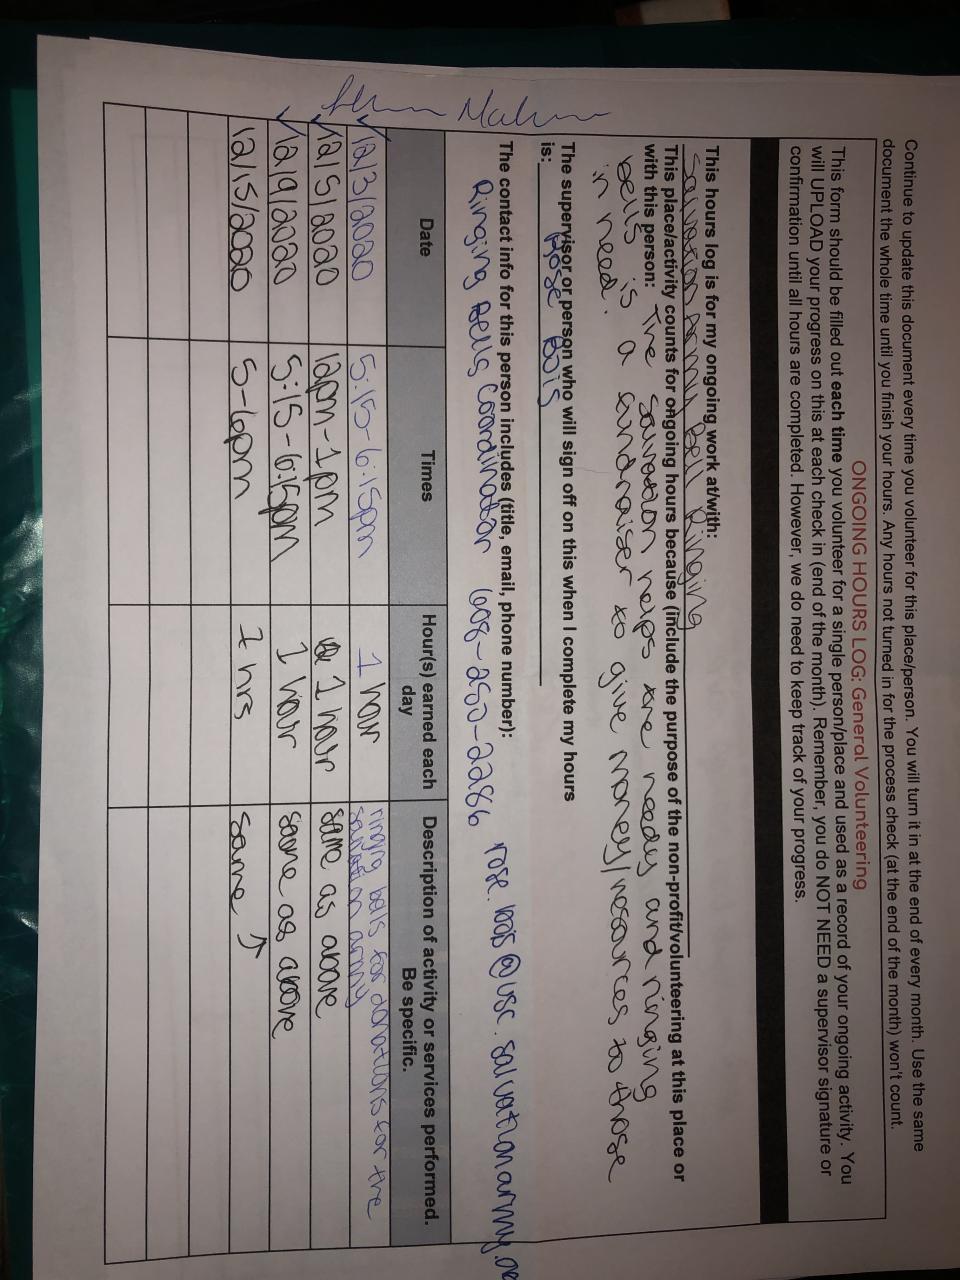 Continue to update this document every time you volunteer for this place/person. You will turn it in at the end of every month. Use the same
document the whole time until you finish your hours. Any hours not turned in for the process check (at the end of the month) won't count.
ONGOING HOURS LOG: General Volunteering
This form should be filled out each time you volunteer for a single person/place and used as a record of your ongoing activity. You
will UPLOAD your progress on this at each check in (end of the month). Remember, you do NOT NEED a supervisor signature or
confirmation until all hours are completed. However, we do need to keep track of your progress.
This hours log is for my ongoing work at/with:
Salvation Army Bell Ringing
This place/activity counts for ongoing hours because (include the purpose of the non-profit/volunteering at this place or
with this person: The Salvation helps the needy and ringing
bells is a fundraiser to give money/resources to those
in need.
The supervisor or person who will sign off on this when I complete my hours
is: Rose Bois
The contact info for this person includes (title, email, phone number):
Ringing Bells Coordinator 608-250-2286 rose.bois@usc.salvationarmy.or
Date Times Hour(s) earned each day Description of activity or services performed. Be specific.
✓12/3/2020 5:15-6:15pm 1 hour ringing bells for donations for the salvation army
✓12/5/2020 12pm-1pm 1 hour same as above
✓12/9/2020 5:15-6:15pm 1 hour same as above
12/15/2020 5-6pm 1 hrs same ↑